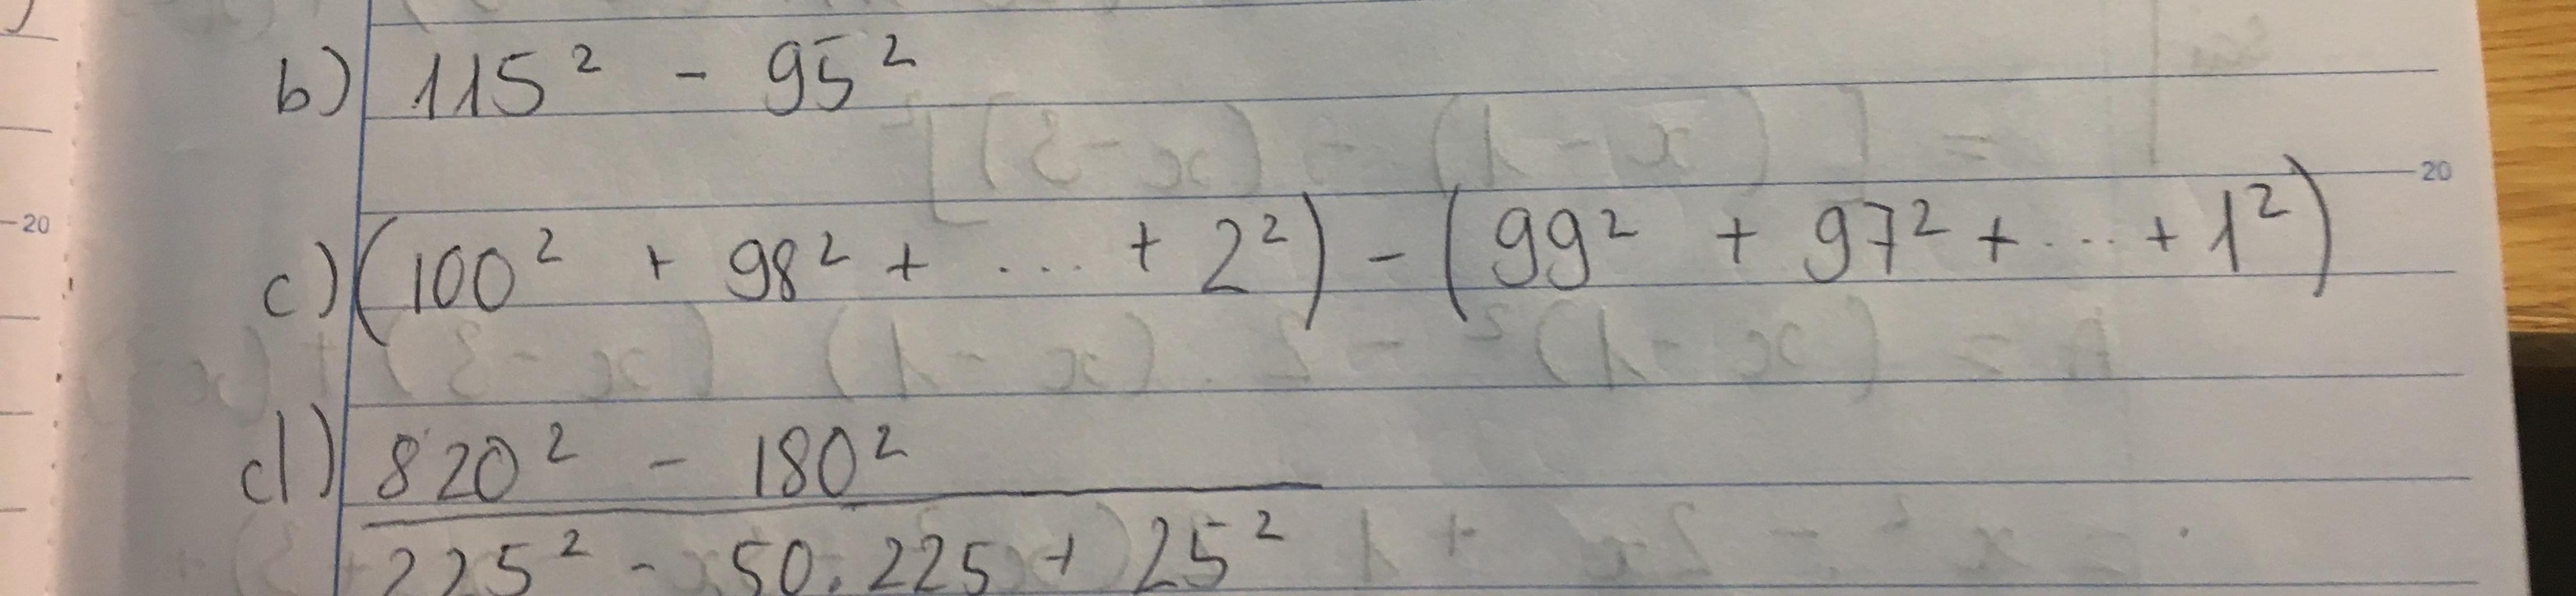 b) 115² - 95²
20
20
c) (100² + 98² + ... + 2²) - (99² + 97² + ... + 1²)
d) 820² - 180²
225² - 50.225 + 25²